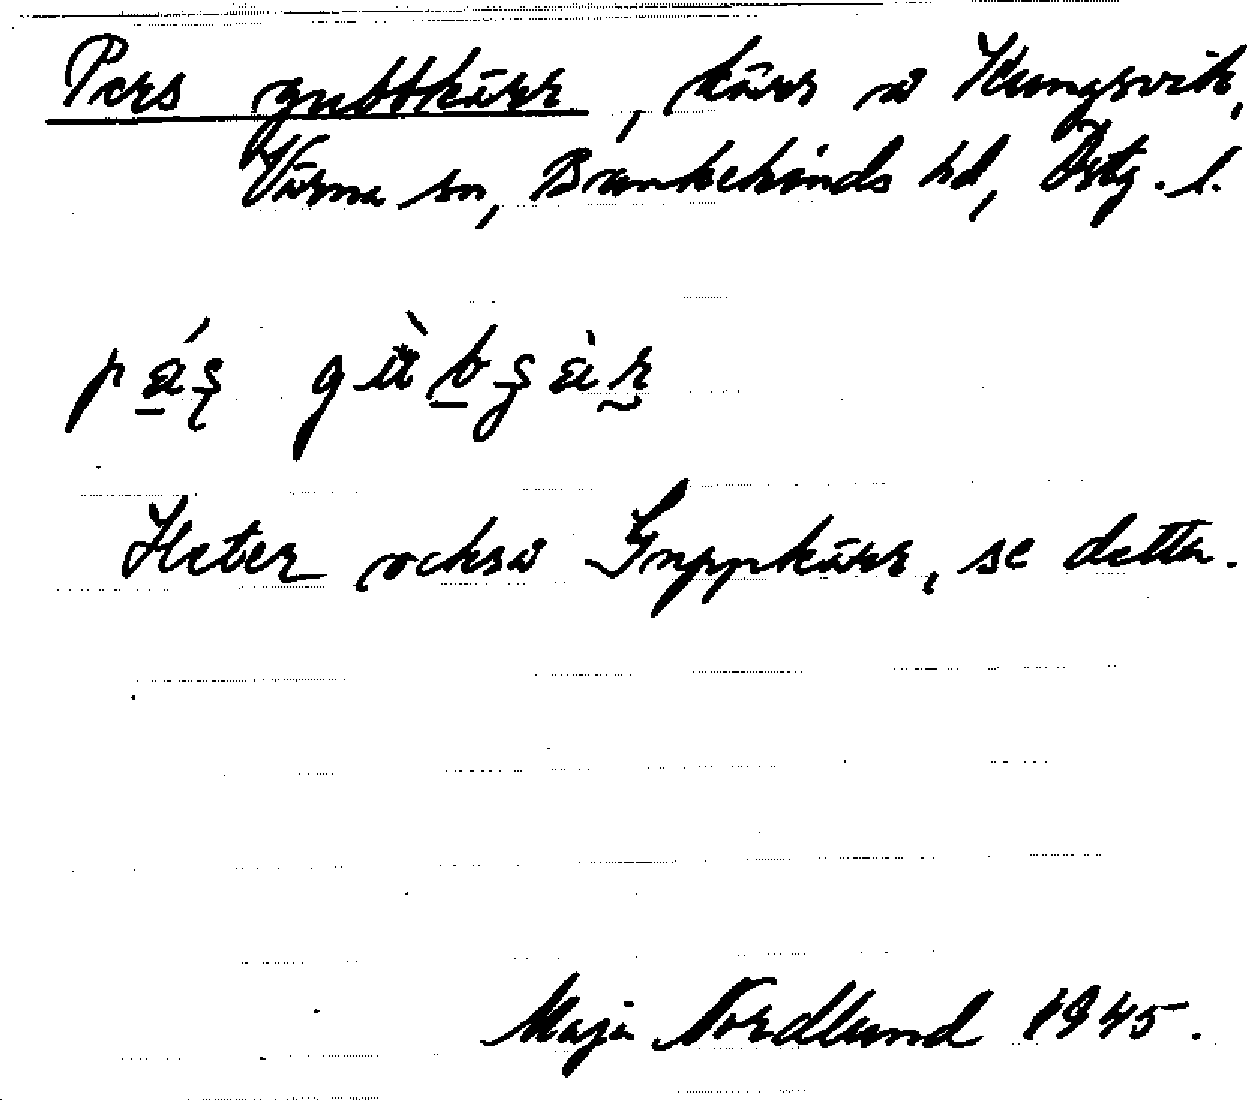 Pers gubbkärr, kärr å Kungsvik,
Vårna sn, Bankekinds hd, Östg. l.
Heter också Snyppkärr, se detta.
Maja Nordlund 1945.